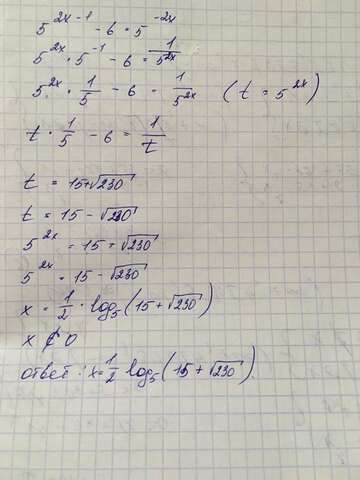 5^{2x-1} - 6 = 5^{-2x}
5^{2x} · 5^{-1} - 6 = \frac{1}{5^{2x}}
5^{2x} · \frac{1}{5} - 6 = \frac{1}{5^{2x}} (t = 5^{2x})
t · \frac{1}{5} - 6 = \frac{1}{t}
t = 15+√230
t = 15 - √230
5^{2x} = 15 + √230
5^{2x} = 15 - √230
x = \frac{1}{2} · log_5 (15 + √230)
x ∉ 0
ответ: x = \frac{1}{2} log_5 (15 + √230)